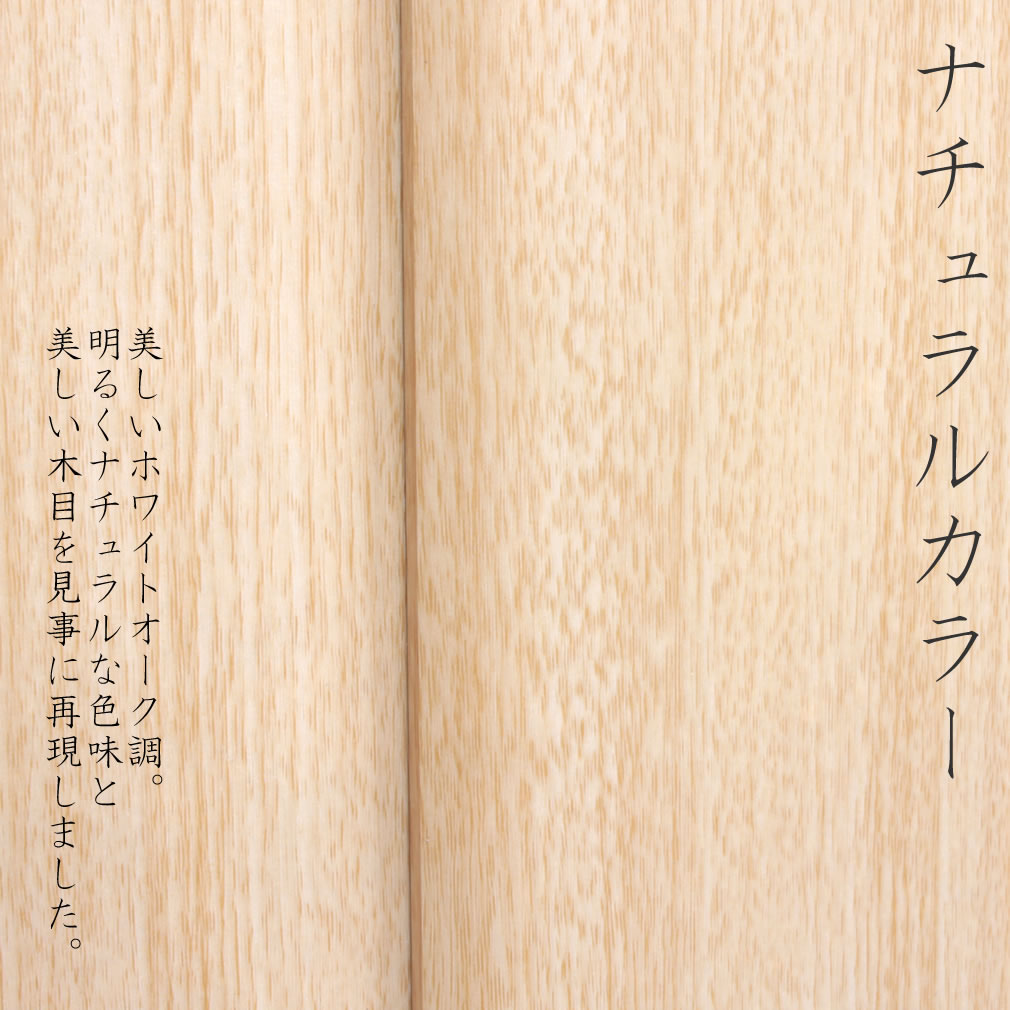 ナチュラルカラー
美しいホワイトオーク調。
明るくナチュラルな色味と
美しい木目を見事に再現しました。